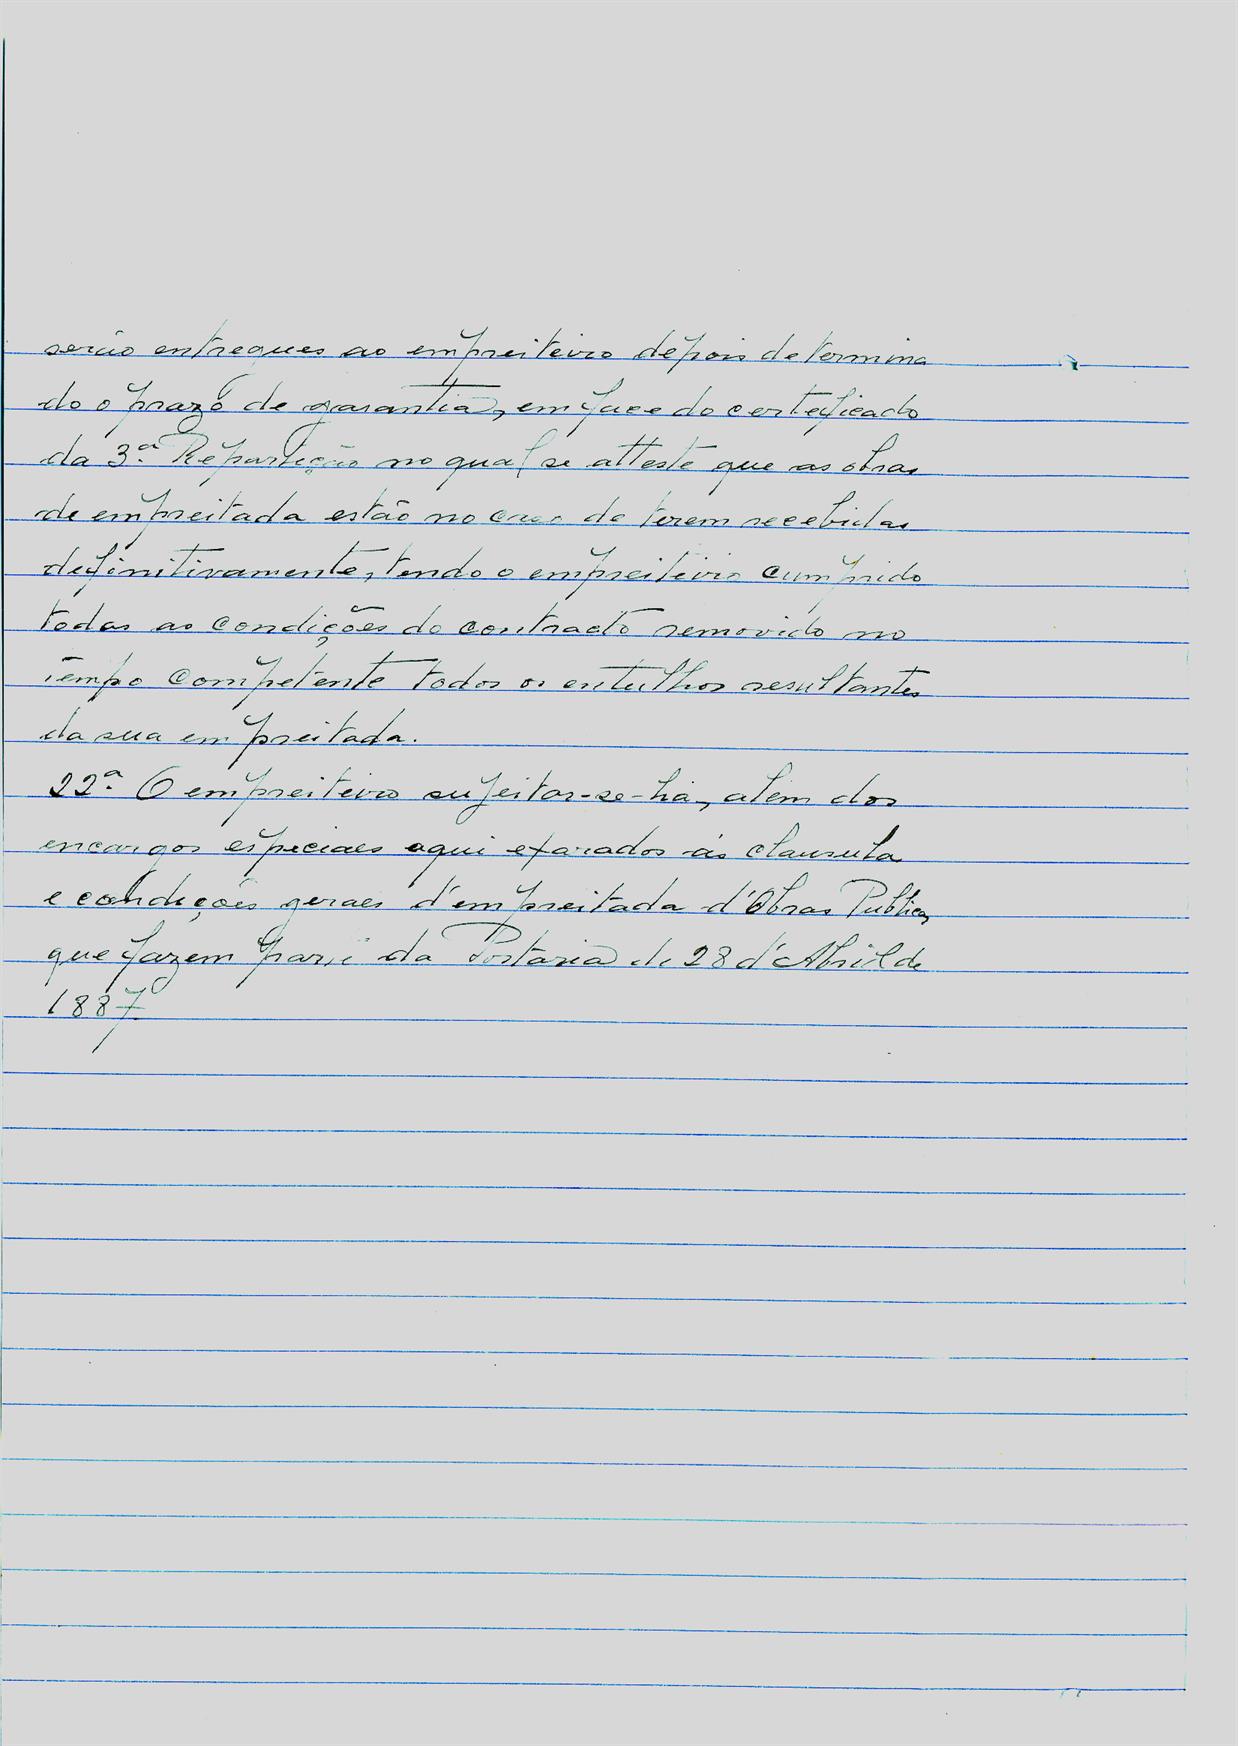 serão entregues ao empreiteiro depois de termina
do o prazo de garantia, em face do certificado
da 3.ª Repartição no qual se atteste que as obras
de empreitada estão no caso de terem recebidas
definitivamente, tendo o empreiteiro cumprido
todas as condições do contracto removido no
tempo competente todos os entulhos resultantes
da sua empreitada.
22.ª O empreiteiro sujeitar-se-há, alem dos
encargos especiaes aqui exarados ás clausula
e condições geraes d'empreitada d'Obras Publicas
que fazem parte da Portaria de 28 d'Abril de
1887